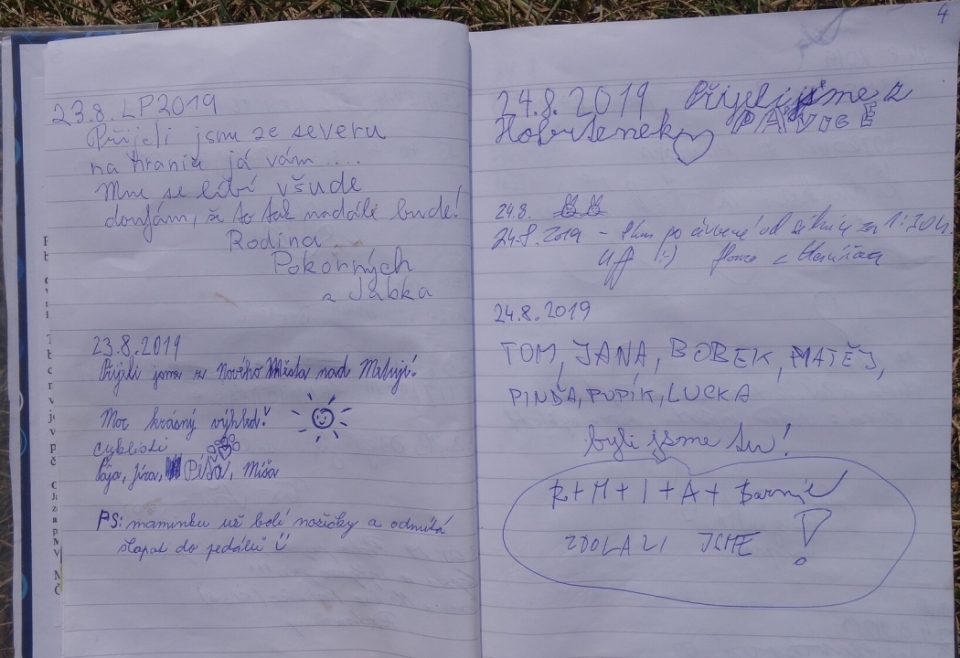 23.8. LP2019
Přijeli jsme ze severu
na hranici já vám ....
Mne se líbí všude
doufám, že to tak nadále bude!
Rodina
Pokorných
a Jabka
23.8.2019
Přijeli jsme z Nového Města nad Metují!
Moc krásný výhled!
cyklisti
Pája, Jíra, Píša, Míša
PS: maminku už bolí nožičky a odmítá
šlapat do pedálů
4
24.8.2019 Přijeli jsme z
PAVOCE
24.8.
24.8.2019 - po červené od za 1:30h.
Uff :)
24.8.2019
TOM, JANA, BOBEK, MATĚJ,
PINĎA, PUPÍK, LUCKA
byli jsme tu!
R+M+I+A+ Barnie
ZDOLALI JSME !